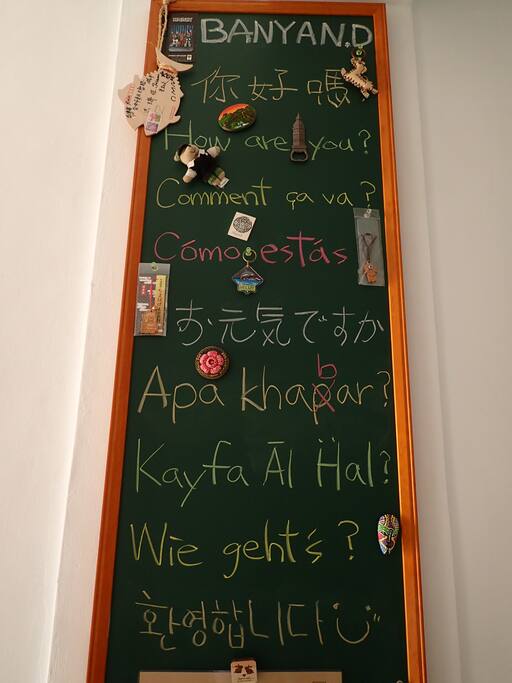 BANYAN.D
你好嗎
How are you?
Comment ça va?
Cómo estás
お元気ですか
Apa khabar?
Kayfa Āl Ḧal?
Wie geht's?
환영합니다